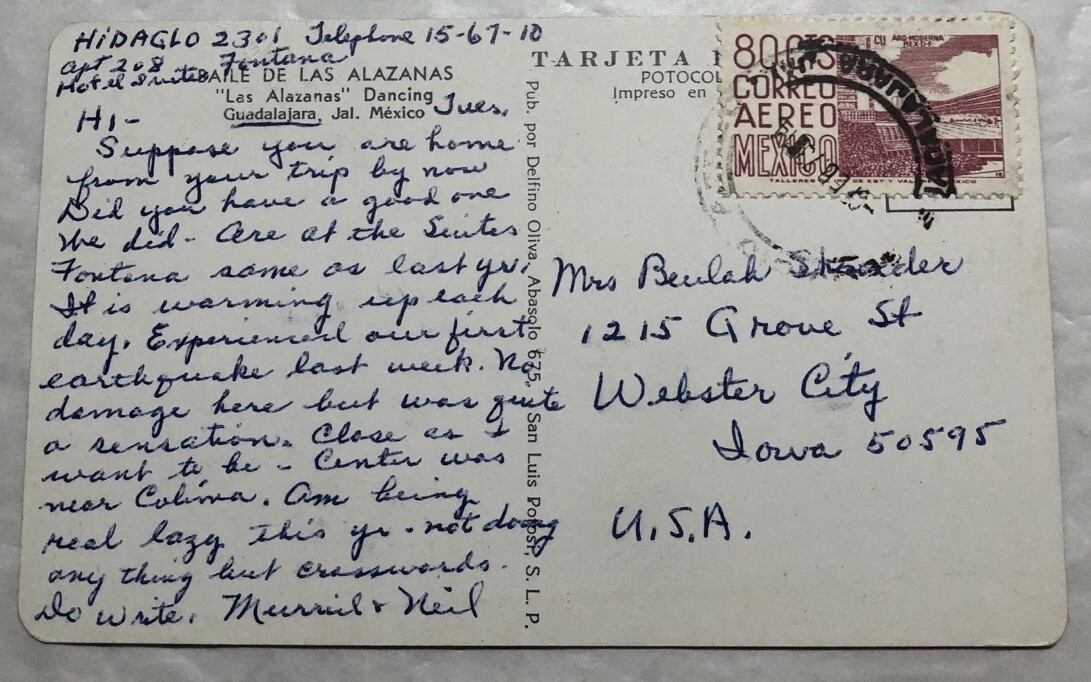 HiDAGLO 2301 Telephone 15-67-10
Apt 208 Fontana
Hotel Suites
BAILE DE LAS ALAZANAS
"Las Alazanas" Dancing
Guadalajara, Jal. México
Tues.
Hi-
Suppose you are home
from your trip by now
Did you have a good one
We did - Are at the Suites
Fontana same as last yr.
It is warming up each
day. Experienced our first
earthquake last week. No
damage here but was quite
a sensation. Close as I
want to be - Center was
near Colima. Am being
real lazy this yr. not doing
any thing but crosswords.
Do write. Murriel & Neil
Pub. por Delfino Oliva, Abasolo 675, San Luis Potosí, S. L. P.
TARJETA
POTOCOL
Impreso en
80 CTS
CU ARQ-MODERNA
MEX D-F
CORREO
AEREO
MEXICO
TALLERES DE EST Y VAL MEXICO
GUADALAJARA
Mrs Beulah
1215 Grove St
Webster City
Iowa 50595
U.S.A.